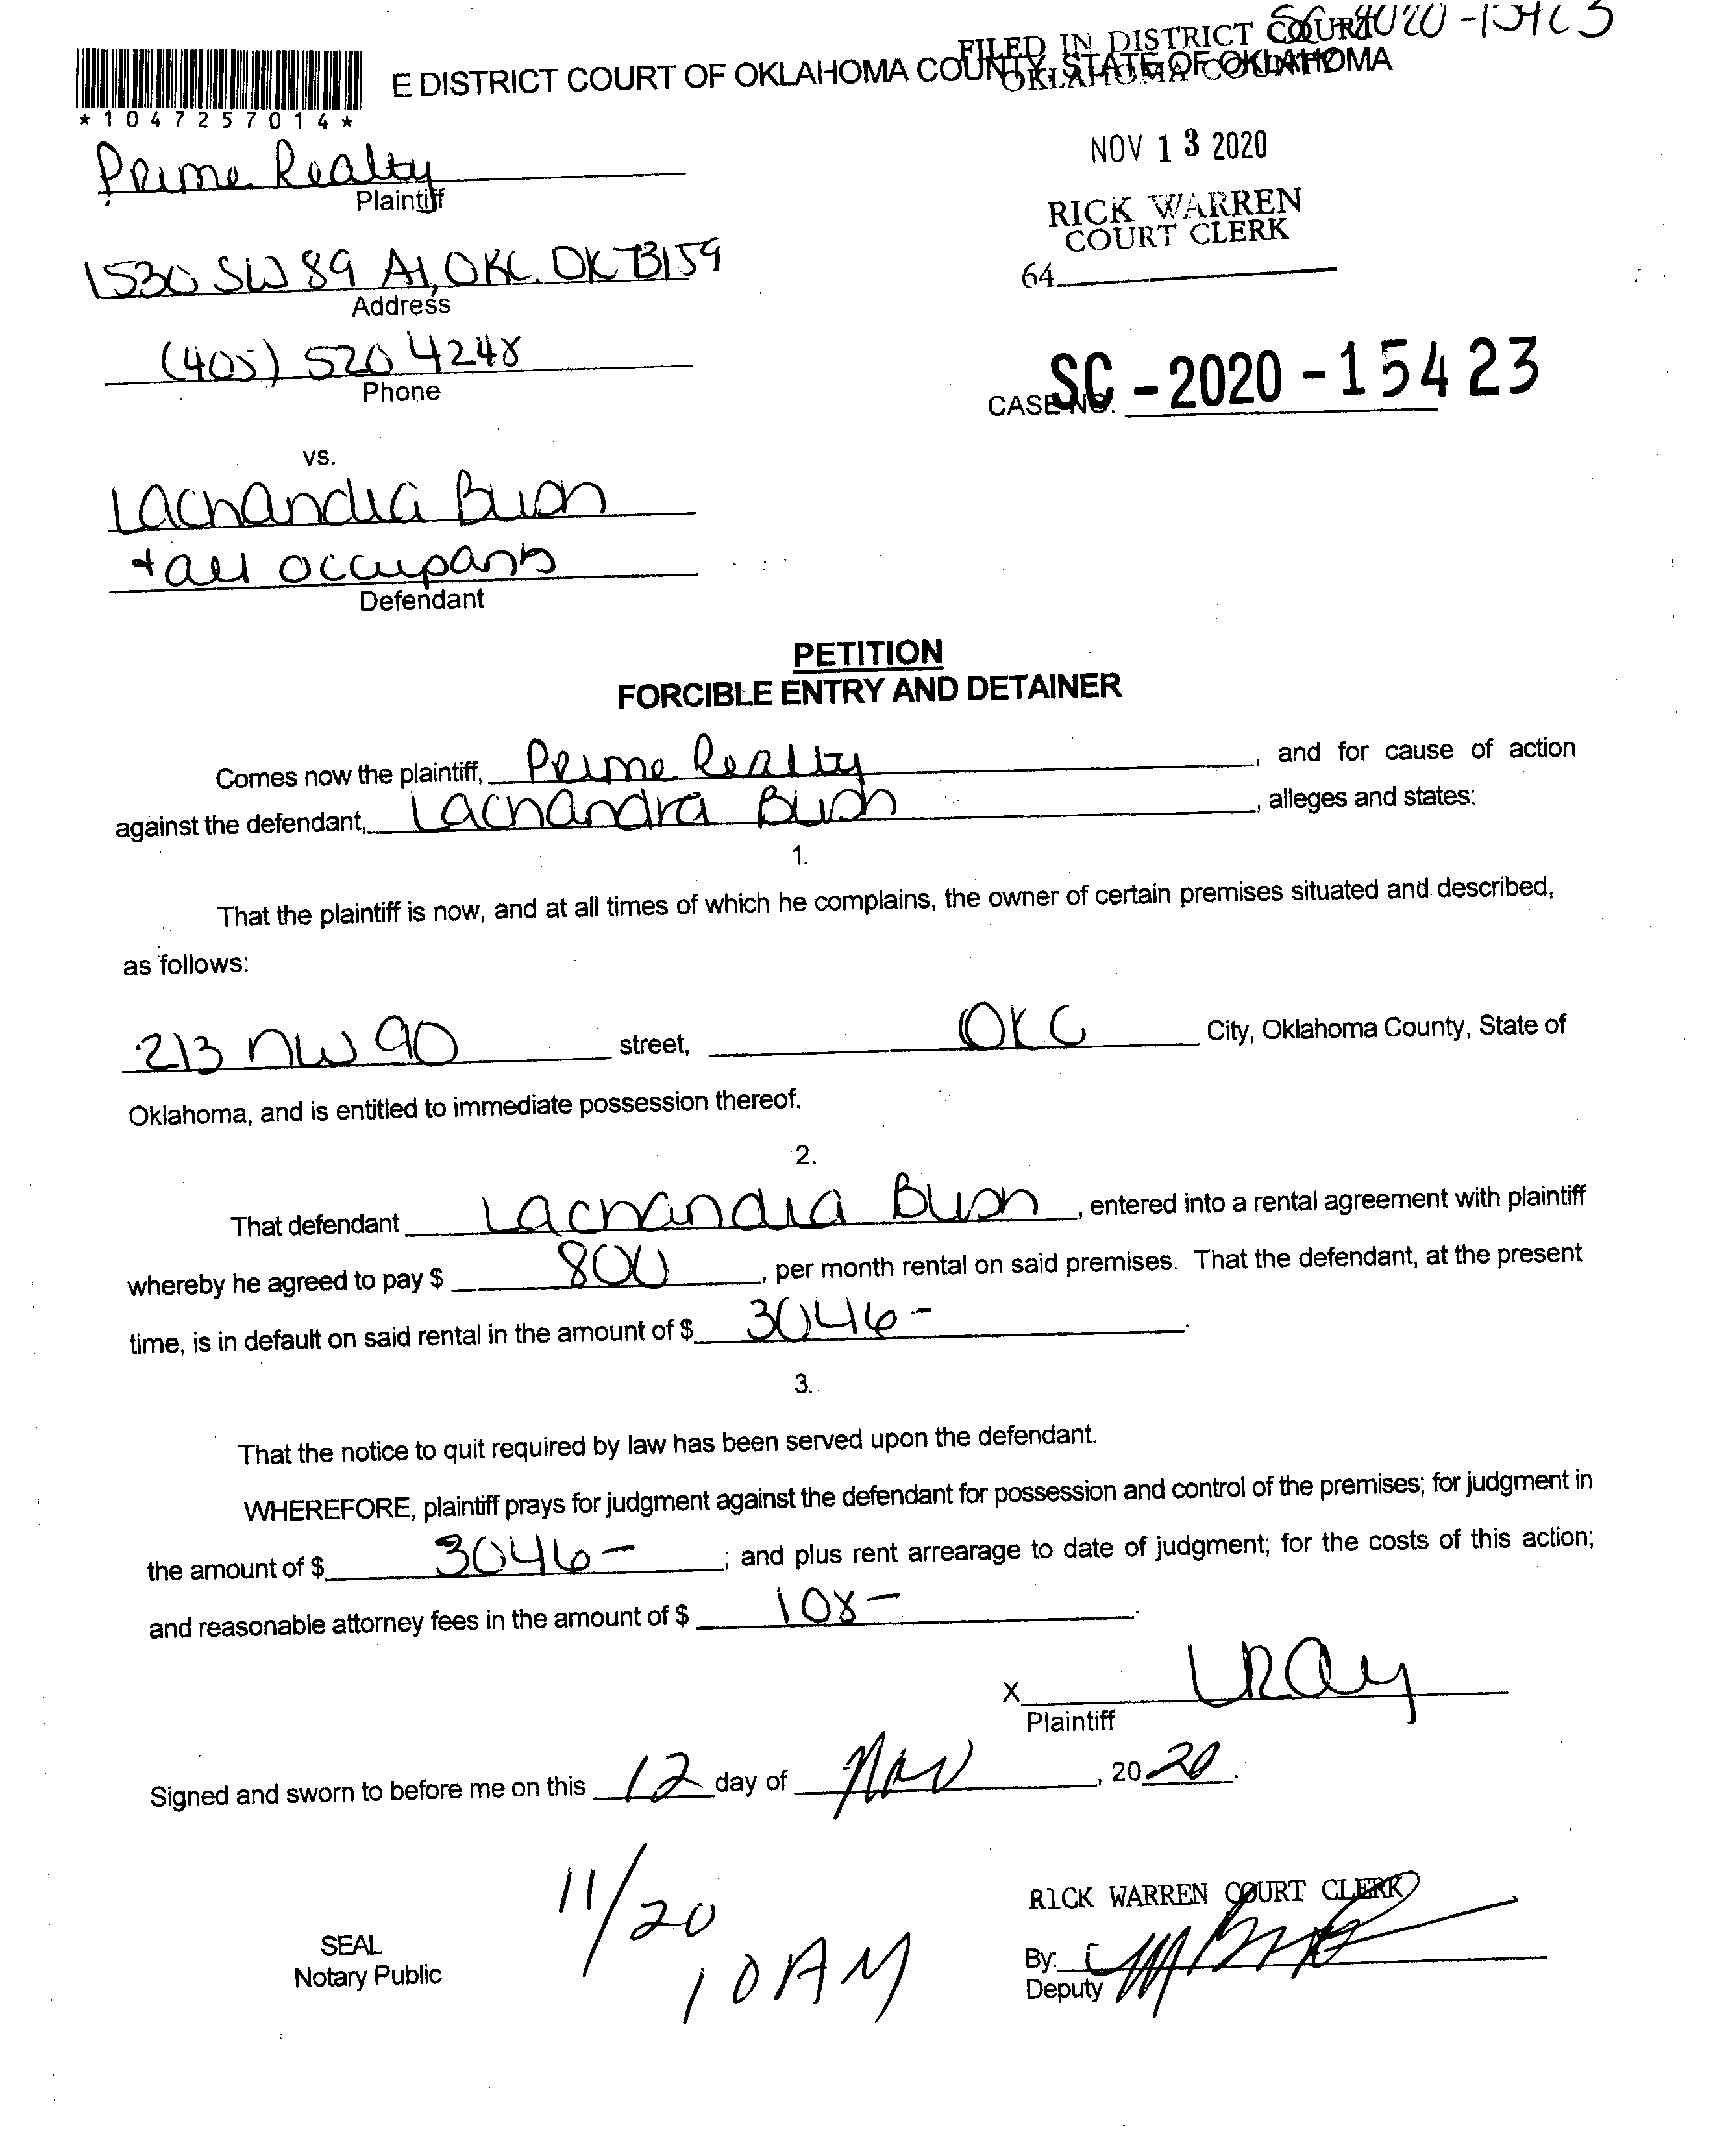 SC 2020-15423
FILED IN DISTRICT COURT
OKLAHOMA COUNTY
E DISTRICT COURT OF OKLAHOMA COUNTY, STATE OF OKLAHOMA
*1047257014*
NOV 13 2020
Prime Realty
Plaintiff
RICK WARREN
COURT CLERK
1530 SW 89 A1, OKC. OK 73159
Address
64
(405) 520 4248
Phone
CASE NO. SC-2020-15423
vs.
Lachandra Bush
+ all occupants
Defendant
PETITION
FORCIBLE ENTRY AND DETAINER
Comes now the plaintiff, Prime Realty, and for cause of action
against the defendant, Lachandra Bush, alleges and states:
1.
That the plaintiff is now, and at all times of which he complains, the owner of certain premises situated and described,
as follows:
213 NW 90 street, OKC City, Oklahoma County, State of
Oklahoma, and is entitled to immediate possession thereof.
2.
That defendant Lachandra Bush, entered into a rental agreement with plaintiff
whereby he agreed to pay $ 800, per month rental on said premises. That the defendant, at the present
time, is in default on said rental in the amount of $ 3046-.
3.
That the notice to quit required by law has been served upon the defendant.
WHEREFORE, plaintiff prays for judgment against the defendant for possession and control of the premises; for judgment in
the amount of $ 3046-; and plus rent arrearage to date of judgment; for the costs of this action;
and reasonable attorney fees in the amount of $ 108-.
X LRay
Plaintiff
Signed and sworn to before me on this 12 day of Nov, 2020.
11/20
10AM
RICK WARREN COURT CLERK
SEAL
Notary Public
By:
Deputy